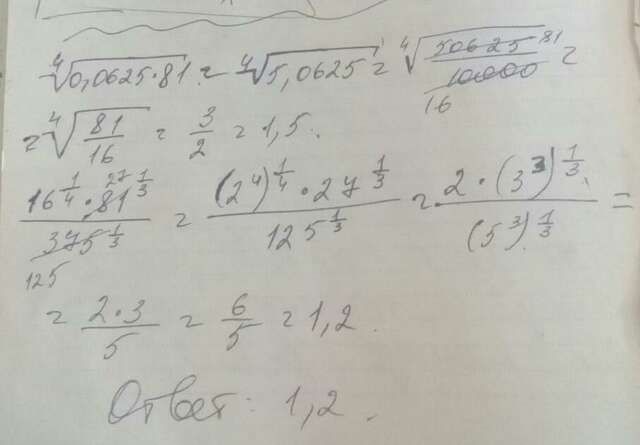 ⁴√0,0625·81 = ⁴√5,0625 = ⁴√(50625/10000) 81 16 =
= ⁴√(81/16) = 3/2 = 1,5.
(16^(1/4) · 81^(1/3))/(375^(1/3)) 27 125 = ((2⁴)^(1/4) · 27^(1/3))/(125^(1/3)) = (2·(3³)^(1/3))/((5³)^(1/3)) =
= (2·3)/5 = 6/5 = 1,2.
Ответ: 1,2.